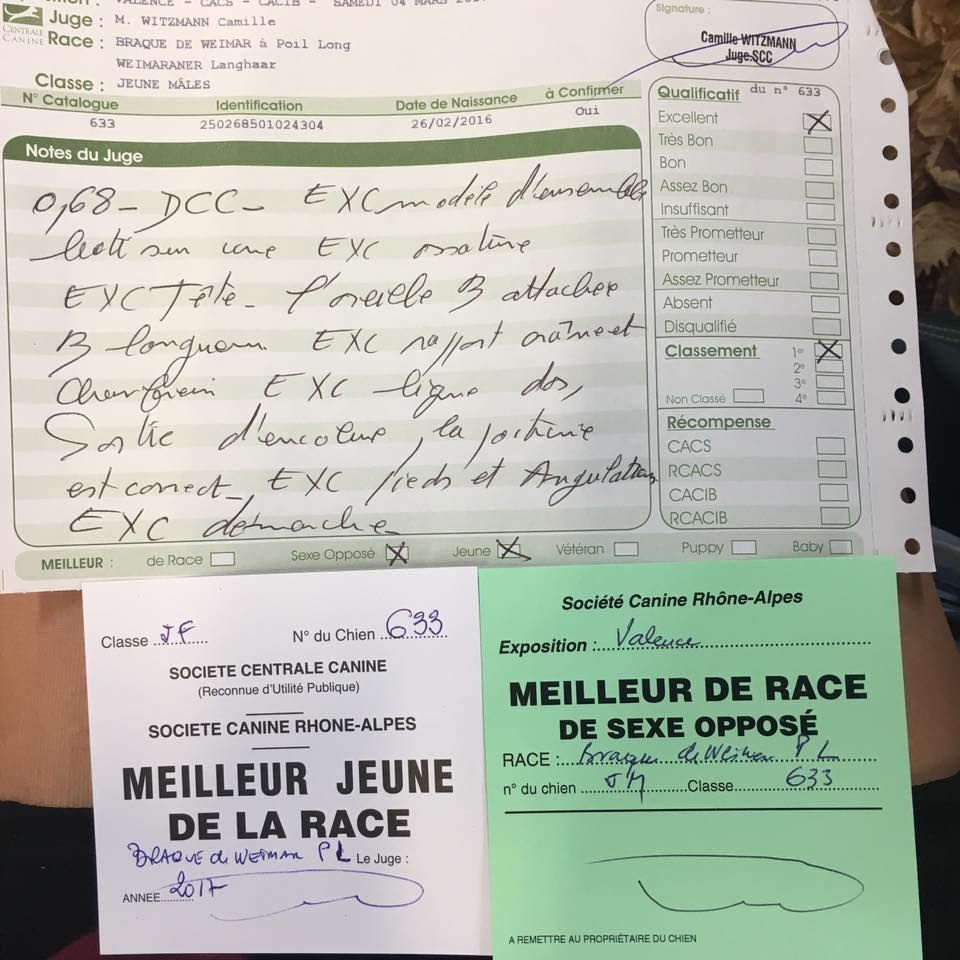 VALENCE - CACS - CACIB - SAMEDI 04 MARS
Juge : M. WITZMANN Camille
CENTRALE CANINE
Race : BRAQUE DE WEIMAR à Poil Long
WEIMARANER Langhaar
Classe : JEUNE MÂLES
Signature :
Camille WITZMANN
Juge.SCC
N° Catalogue Identification Date de Naissance à Confirmer
633 250268501024304 26/02/2016 Oui
Notes du Juge
0,68 - DCC - EXC modèle d'ensemble
bati sur une EXC ossature
EXC Tête - l'oreille B attachée
B longueur EXC rapport crâne et
Chanfrein EXC ligne dos,
Sortie d'encolure, la poitrine
est correct, EXC pieds et Angulation
EXC démarche
Qualificatif du n° 633
Excellent X
Très Bon
Bon
Assez Bon
Insuffisant
Très Prometteur
Prometteur
Assez Prometteur
Absent
Disqualifié
Classement 1er X
2e
3e
Non Classé 4e
Récompense
CACS
RCACS
CACIB
RCACIB
MEILLEUR : de Race Sexe Opposé X Jeune X Vétéran Puppy Baby
Classe JF N° du Chien 633
SOCIETE CENTRALE CANINE
(Reconnue d'Utilité Publique)
SOCIETE CANINE RHONE-ALPES
MEILLEUR JEUNE
DE LA RACE
BRAQUE de WEIMAR PL Le Juge :
ANNEE 2017
Société Canine Rhône-Alpes
Exposition : Valence
MEILLEUR DE RACE
DE SEXE OPPOSÉ
RACE : Braque de Weimar PL
n° du chien JM Classe 633
A REMETTRE AU PROPRIÉTAIRE DU CHIEN